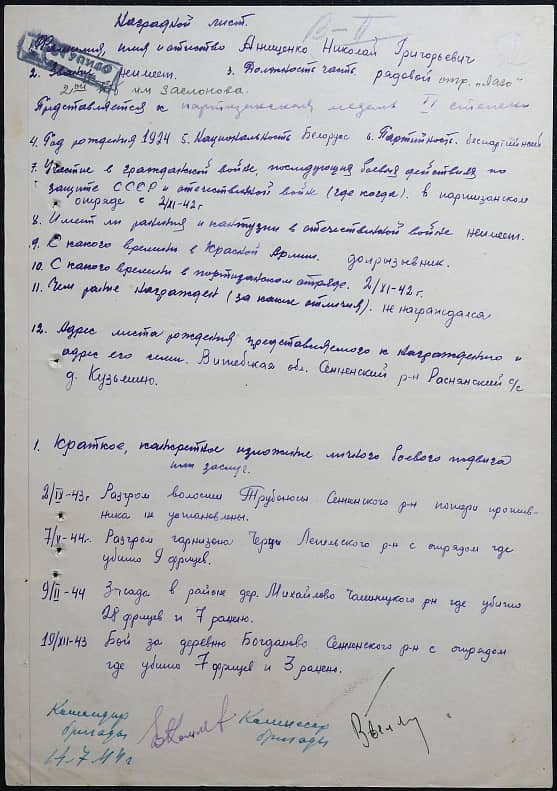 Наградной лист.
В-II
1. Фамилия, имя и отчество Анищенко Николай Григорьевич
2. Звание не имеет. 3. Должность часть рядовой отр. „Лазо”
2ой им Заслонова.
Представляется к партизанской медаль II степени
4. Год рождения 1924 5. Национальность Белорус 6. Партийность. беспартийный
7. Участие в гражданской войне, последующия боевыя действиях по
защите СССР и отечественной войне (где когда). в партизанском
отряде с 2/XI-42 г
8. Имеет ли ранения и контузии в отечественной войне не имеет.
9. С какого времени в Красной Армии. допризывник.
10. С какого времени в партизанском отряде. 2/XI-42 г.
11. Чем ранее награжден (за какие отличия). не награждался
12. Адрес места рождения представляемого к награждению и
адрес его семьи. Витебская обл. Сенненский р-н Раснянский с/с
д. Кузьмино.
1. Краткое, конкретное изложение личного боевого подвига
или заслуг.
Разгром волости Трубоносы Сенненского р-н потери против-
ника не установлены.
Разгром гарнизона Лепельского р-н с отрядом где
убито 9 фрицев.
9/II-44 Засада в районе дер. Михайлово Чашницкого рн где убито
28 фрицев и 7 ранено.
19/XII-43 Бой за деревню Богданово Сенненского р-н с отрядом
где убито 7 фрицев и 3 ранено.
Командир Комиссар
бригады бригады